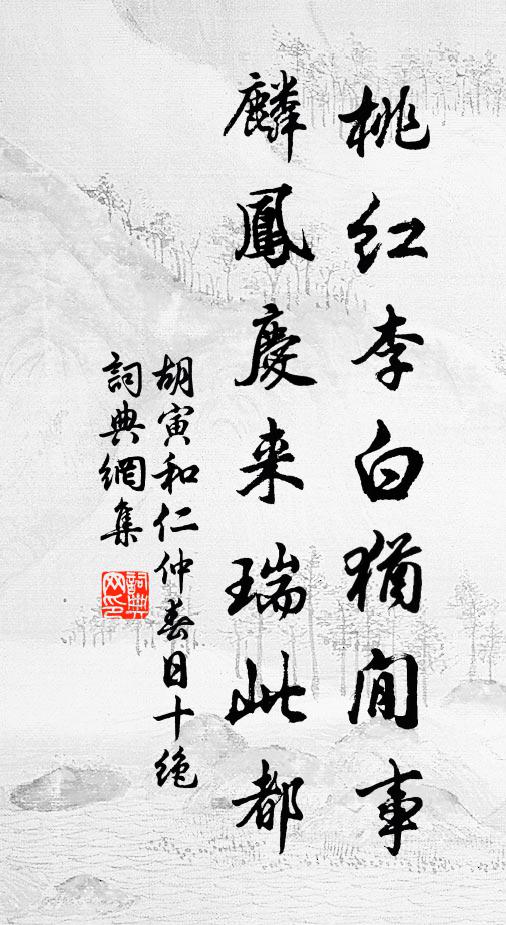 桃紅李白猶閒事
麟鳳慶来瑞此都
胡寅和仁仲春日十絶
詞典網集
詞典网印